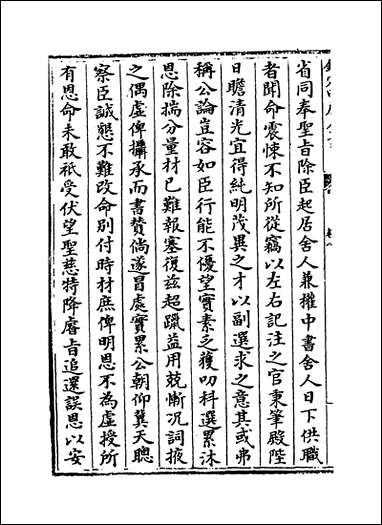 省同奉聖旨除臣起居舍人兼權中書舍人日下供職
者聞命震悚不知所從竊以左右記注之官秉筆殿陛
日瞻清光宜得純明茂異之才以副選求之意其或弗
稱公論豈容如臣行能不優望實素乏獲叨科選累沐
恩除揣分量材已難報塞復玆超躐益用兢慚况詞掖
之偶虛俾攝承而書贊倘遂冒處實累公朝仰冀天聰
察臣誠懇不難改命別付時材庶俾明恩不為虛授所
有恩命未敢祇受伏望聖慈特降睿旨追還誤恩以安